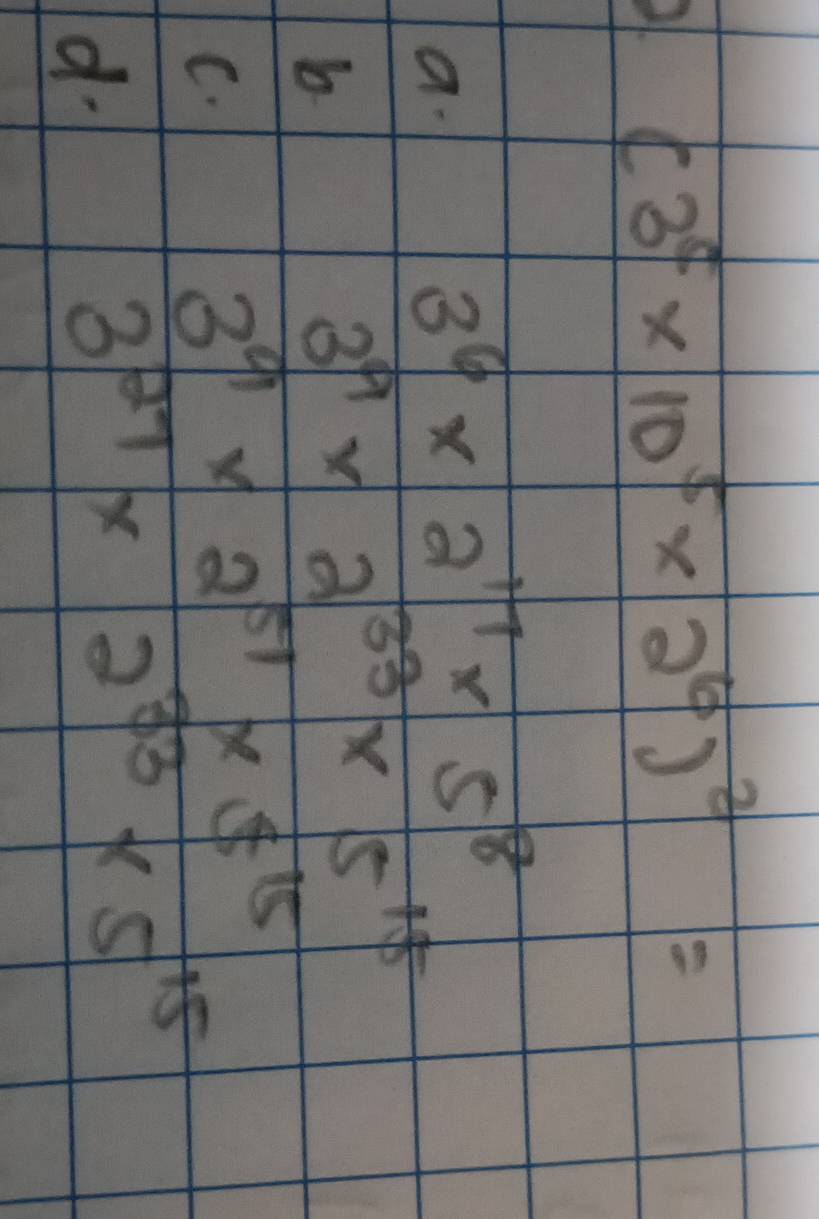 (3⁸ × 10⁵ × 2⁶)² =
a. 3⁶ × 2¹⁷ × 5⁸
b. 3⁹ × 2³³ × 5¹⁵
c. 3⁹ × 2⁵¹ × 5¹⁵
d. 3²⁷ × 2³³ × 5¹⁵